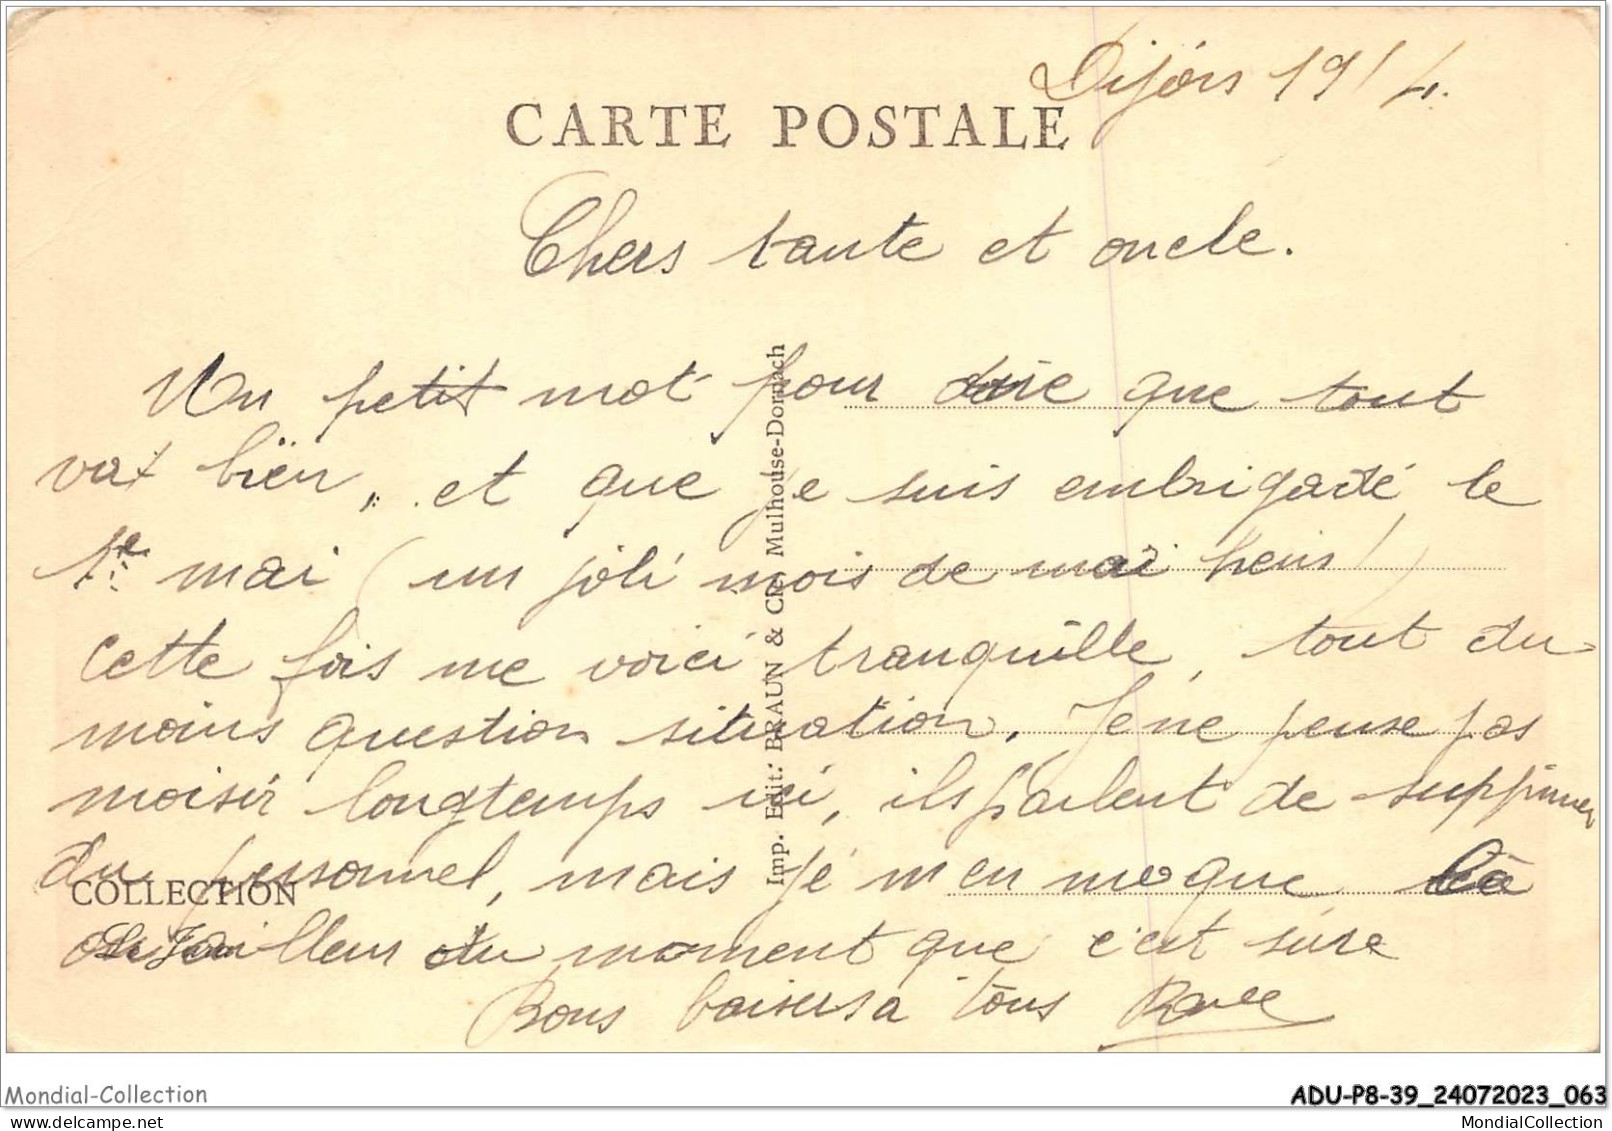 Dijon 19/4.
CARTE POSTALE
Chers tante et oncle.
Un petit mot pour dire que tout
vat bien, et que je suis embrigadé le
1er mai (un joli mois de mai hein!)
Cette fois me voici tranquille, tout du
moins question situation. Je ne pense pas
moisir longtemps ici, ils parlent de supprimer
du personnel, mais je m'en moque là
ou ailleur du moment que c'est sûre
Bons baisers à tous
Imp. Edit.: BRAUN & Cie Mulhouse-Dornach
COLLECTION
Mondial-Collection
ADU-P8-39_24072023_063
MondialCollection